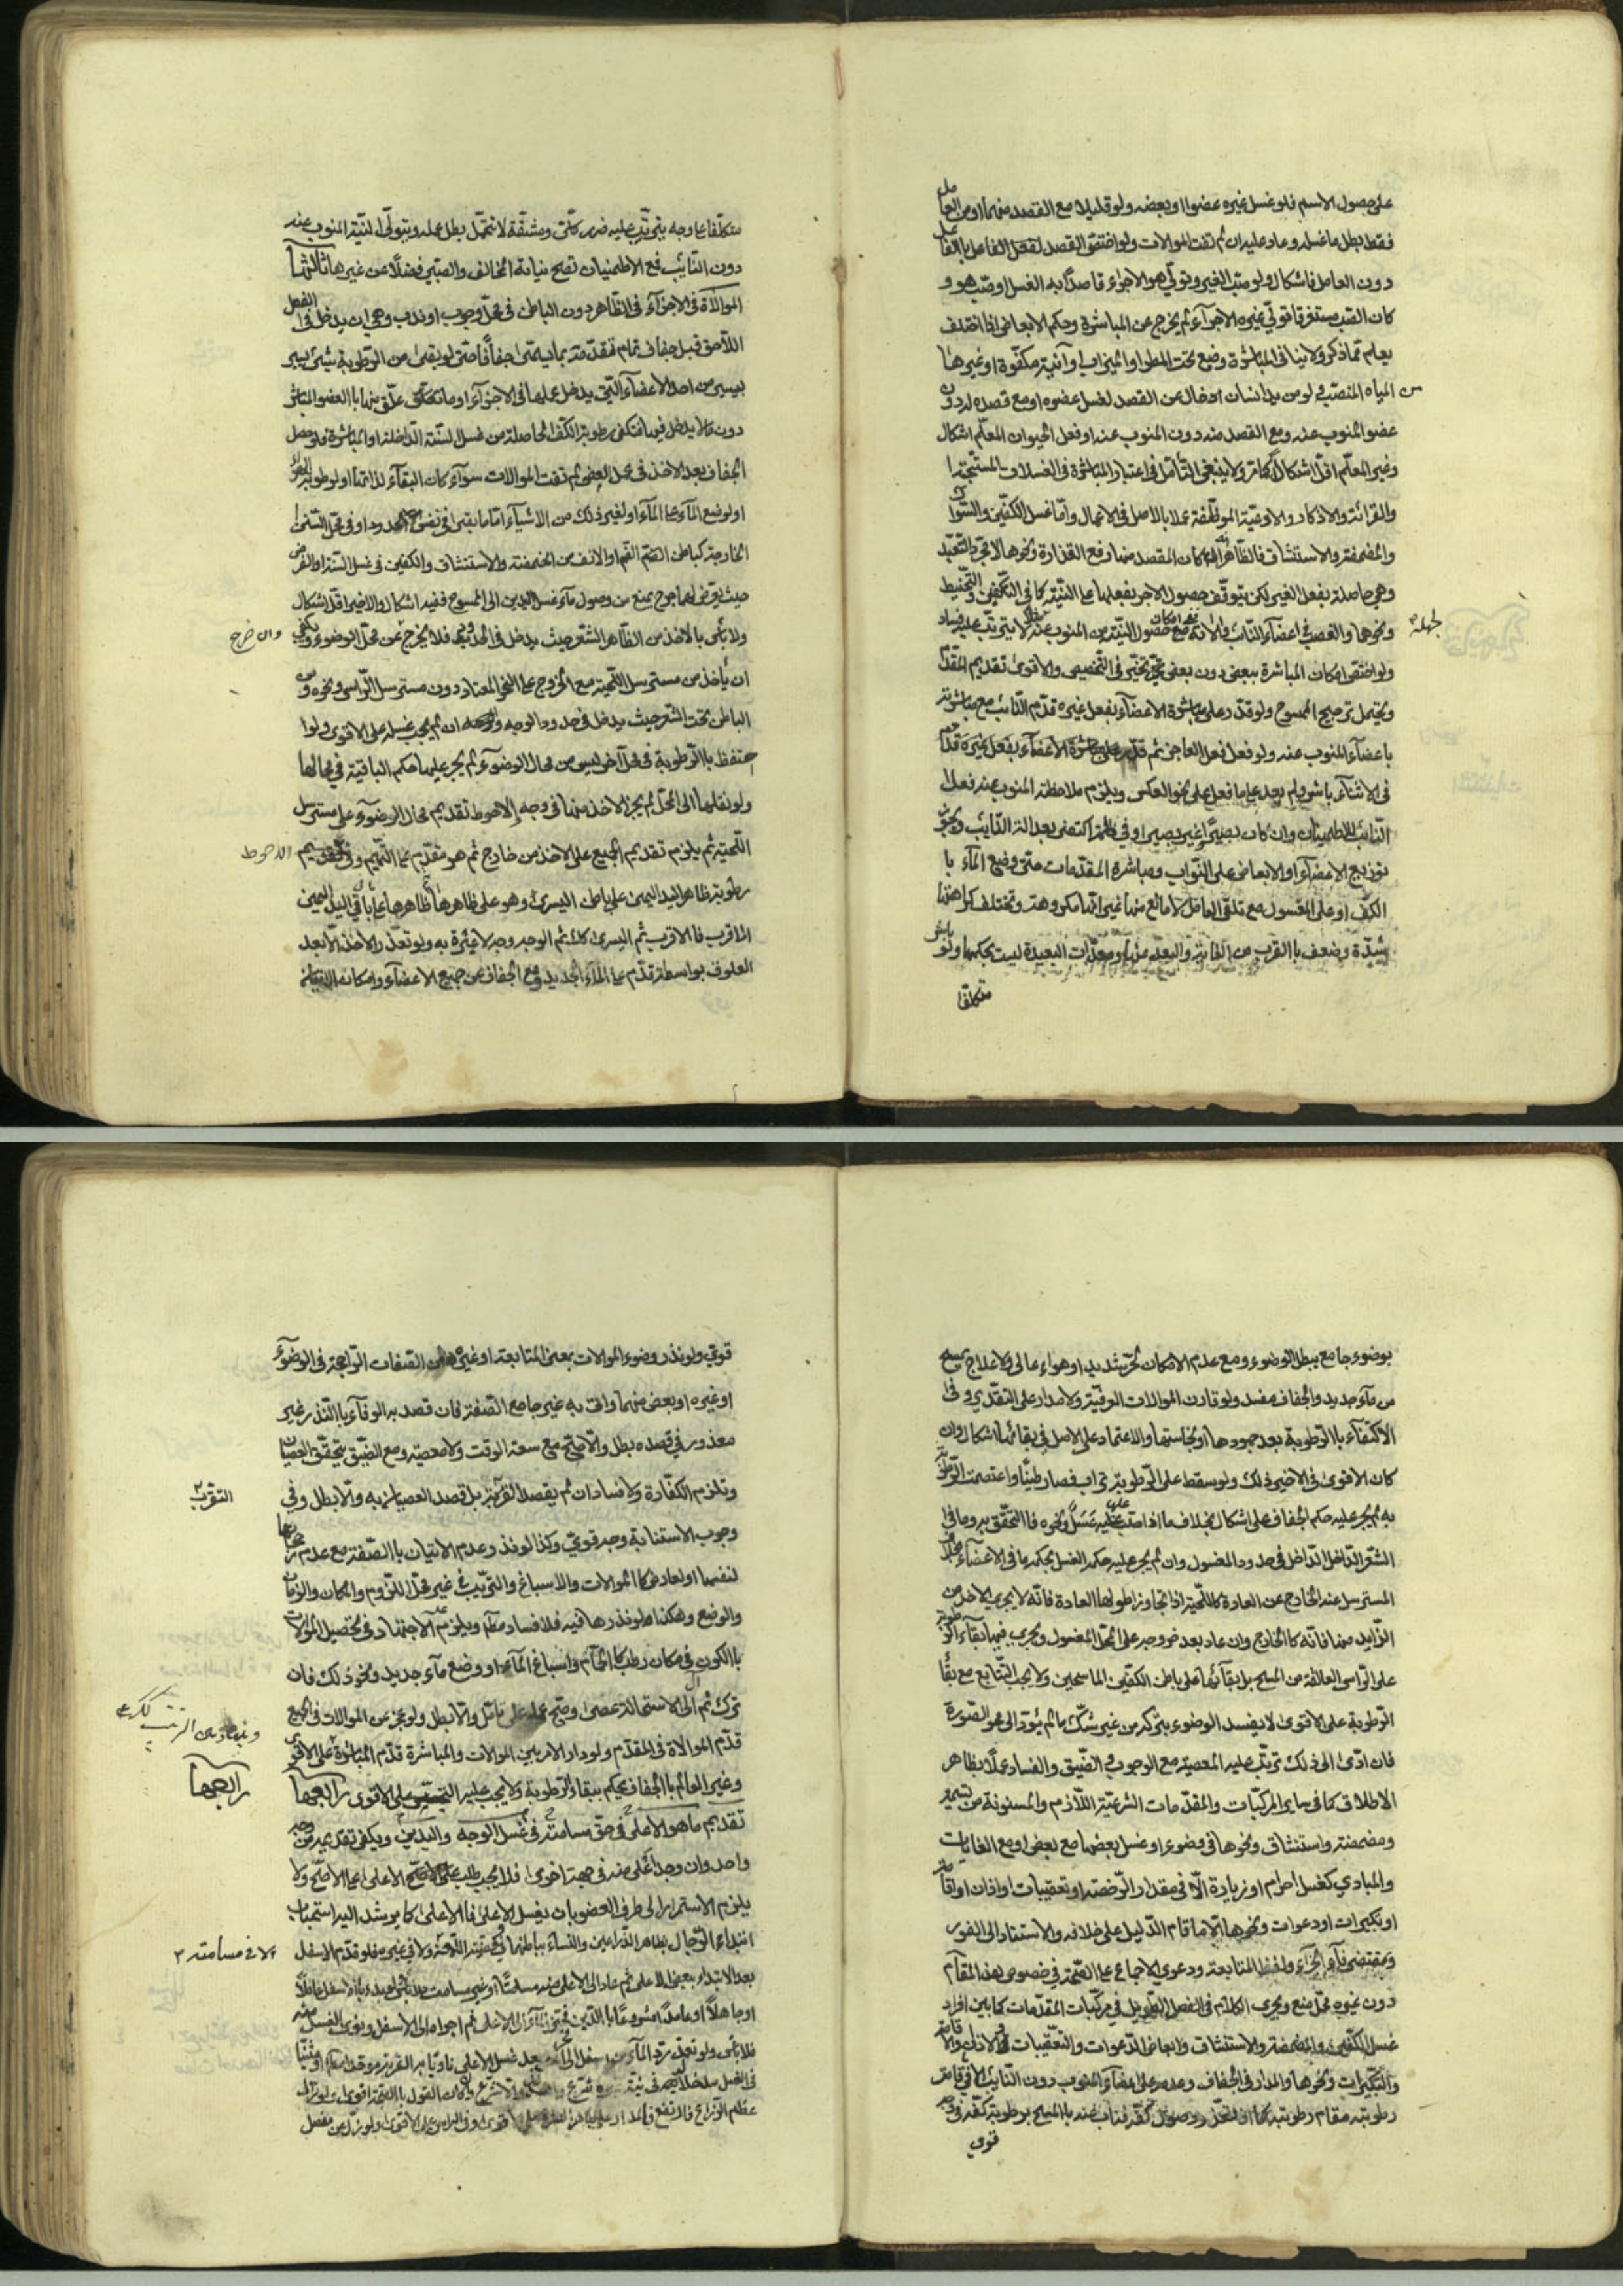 على حصول الاسم فلو غسل غيره عضوا او بعضه ولو قليلا مع القصد منهما او من العامل
فقط بطل ما غسله وعاد عليه ان لم تفت الموالات ولو اختص القصد لقفل الفاعل بالفاعل
دون العامل فاشكال ولو صب الغير وتولى هو الاجراء قاصدا به الغسل او صب هو و
كان الصب مستغرقا تولى غيره الاجراء لم يخرج عن المباشرة وحكم الابعاض اذا اختلف
يعلم مما ذكر ولا ينافي المباشرة وضع تحت المطر او الميزاب او آنية مكفوة او غيرها
من المياه المنصب ولو من يد انسان ادخال عن القصد لغسل عضوه او مع قصده له دون
عضو المنوب عنه ومع القصد منه دون المنوب عنه او فعل الحيوان المعلم اشكال
وغير المعلم اقل اشكال كما مر ولا ينبغي التأمل في اعتبار المباشرة في الغسلات المستحبة
والقرائة والاذكار والاوعية الموظفة عملا بالاصل في الاعمال واما غسل الكفين والسواك
والمضمضة والاستنشاق فالظاهر ان المقصد منها رفع القذارة ونحوها لا مجرد التعبد
وهي حاصلة بفعل الغير لكن يتوقف حصول الاجر بفعلها على النية كما في التكفين والتحنيط
ونحوهما والغصب في اعضاء النائب والاته مع امكان حصول النية من المنوب عنه لا يترتب عليه فساد
لجهله
ولو اختص امكان المباشرة ببعض دون بعض تخير في التخصيص والاقوى تقديم المقدم
ويحتمل ترجيح الممسوح ولو قدر على مباشرة الاعضاء بفعل غيره قدم النائب مع مباشرته
باعضاء المنوب عنه ولو فعل فعل العاجز ثم قدر على مباشرة الاعضاء بفعل غيره قدمه
في الاثناء باشر ولم يعد على ما فعل على نحو العكس ويلزم ملاحظة المنوب عنه فعل
النائب للاطمينان وان كان بصيرا غير بصير او في ظلمة اكتفى بعدالة النائب ويجوز
توزيع الاعضاء او الابعاض على النواب ومباشرة المقدمات حتى وضع الماء با
الكف او على المغسول مع تلقي العامل لا مانع منها غير انها مكروهة وتختلف كراهتها
شدة وضعف بالقرب من الغاية والبعد عنها ومعدات البعيدة ليست بحكمها ولو باشر
متكلفا
متكلفا على وجه يترتب عليه ضرر كلي ومشقة لا تتحمل بطل عمله ويتولى النية المنوب عنه
دون النائب فمع الاطمينان تصح نيابة المخالف والصبي فضلا عن غيرها ثالثها
الموالاة في الاجزاء في الظاهر دون الباطن في محل وجوب او ندب وهي ان يدخل في الفصل
اللاحق قبل جفاف تمام تقدمه بما يسمى جفافا حتى لو بقى من الرطوبة شيئ يسير
بيسير من احد الاعضاء التي يدخل عملها في الاجزاء او ما تحقق علق منها بالعضو المباشر
دون ما لا يدخل فيها فتكفى رطوبة الكف الحاصلة من غسل السنة الداخلة او المباشرة فلو حصل
الجفاف بعد الاخذ في عمل البعض لم تفت الموالات سواء كان البقاء لذاتها او لرطوبة الهواء
او لوضع الماء على الماء او لغير ذلك من الاشياء اما ما بقى في نفس المحدود او في محل السنن
الخارجة كباطن الفم او الانف من المضمضة والاستنشاق والكفين في غسل السنة او الفرض
حيث يعرض لهما جرح يمنع من وصول ماء غسل اليدين الى الممسوح ففيه اشكال والاخير اقل اشكال
ولا بأس بالاخذ من الظاهر الشعر حيث يدخل في الحدود فلا يخرج عن محل الوضوء ويكفي
وان خرج
ان يأخذ من مسترسل اللحية مع الخروج على النحو المعتاد دون مسترسل الرأس ونحوه ومن
الباطن تحت الشعر حيث يدخل في حدود الوجه ان لم يجب غسله على الاقوى ولو ا
حتفظ بالرطوبة في محل آخر ليس من محال الوضوء لم يجر عليها حكم الباقية في محالها
ولو نقلها الى المحل لم يجز الاخذ منها في وجه الاحوط تقديم محال الوضوء على مسترسل
اللحية ثم يلزم تقديم الجميع على الاخذ من خارج ثم هو مقدم على التيمم وفي تقديم
الاحوط
رطوبة ظاهر اليد اليمنى على باطن اليسرى وهو على ظاهرها ظاهرها على باقي اليد اليمنى
الاقرب فالاقرب ثم اليسرى كك ثم الوجه وجه لا عبرة به ولو تعذر الاخذ الا بعد
العلوق بواسطة قدم على الماء الجديد ومع الجفاف عن جميع الاعضاء وامكان الاتيان
بوضوء جامع يبطل الوضوء ومع عدم الامكان لحر شديد او هواء عالى ولا علاج يمسح
من ماء جديد والجفاف مفسد ولو قارن الموالات الوقتية ولا مدار على التقديري وفي
الاكتفاء بالرطوبة بعد جمودها او نجاستها والاعتماد على الاصل في بقائها اشكال وان
كان الاقوى في الاخير ذلك ولو سقط على الرطوبة تراب فصار طينا واعتصمت الرطوبة
به لم يجر عليه حكم الجفاف على اشكال بخلاف ما اذا صب عليه عسل ونحوه فالتحقق به وما في
الشعر الداخل الداخل في حدود المغسول وان لم يجر عليه حكم الغسل بحكم ما في الاعضاء بخلاف
المسترسل عنه الخارج عن العادة كاللحية اذا تجاوز اطولها العادة فانه لا يجزي الاخذ من
الزايد منها فانه كالخارج وان عاد بعد خروجه على المحل المغسول ويجري فيها بقاء الرطوبة
على الرأس العلاقه من المسح بل بقائها على باطن الكفين الماسحين ولا يجب التتابع مع بقا
الرطوبة على الاقوى لا يفسد الوضوء بتركه من غير شك ما لم يؤد الى محو الصورة
فان ادى الى ذلك ترتب عليه المعصية مع الوجوب في الضيق والفساد عملا بظاهر
الاطلاق كما في ساير المركبات والمقدمات الشرعية اللازم والمسنونة من تسمية
ومضمضة واستنشاق ونحوها في وضوء او غسل بعضها مع بعض او مع الغايات
والمبادي كغسل احرام او زيارة الا في مقدار الرخصة او تعقيبات او اذان او اقامة
او تكبيرات او دعوات ونحوها الا ما قام الدليل على خلافه والاستناد الى الفور
ومقتضى فاء الجزاء ولفظ المتابعة ودعوى الاجماع على الصحة في خصوص هذا المقام
دون غيره محل منع ويجري الكلام في الفصل الطويل في مركبات المقدمات كما بين افراد
غسل الكفين والمضمضة والاستنشاق وابعاض الدعوات والتعقيبات والاذان والاقامة
والتكبيرات ونحوها والمدار في الجفاف وعدمه على اعضاء المنوب دون النائب الا في قائم
رطوبته مقام رطوبته كما لو تعذر وصول كفه فناب عنه بالمسح برطوبة كفه في وجه
قوى
قوى ولو نذر وضوء الموالات بمعنى المتابعة او غيرها من الصفات الراجحة في الوضوء
او غيره او بعض منهما واتى به غير جامع الصفة فان قصد به الوفاء بالنذر غير
معذور في قصده بطل والا صح مع سعة الوقت ولا معصية ومع الضيق يتحقق العصيان
وتلزم الكفارة ولا فساد ان لم يقصد القربة بل قصد العصيان به والا بطل وفي
التقرب
وجوب الاستنابة وجه قوى وكذا لو نذر وعدم الاتيان بالصفة مع عدم رجحانها
لنفسها او لعارض كالموالات والاسباغ والترتيب في غير محل اللزوم والمكان والزمان
والوضع وهكذا لو نذرها فيه فلا فساد مطلقا ويلزم الاجتهاد في تحصيل الموالات
بالكون في مكان رطب كالحمام واسباغ الماء او وضع ماء جديد ونحو ذلك فان
ترك ثم آل الى الاستحالة عصى وصح عمله على تأمل والا بطل ولو عجز عن الموالات في الجميع
قدم الموالاة في المقدم ولو دار الامر بين الموالات والمباشرة قدم المباشرة على الاقوى
وغير العالم بالجفاف يحكم ببقاء الرطوبة ولا يجب عليه التجسس على الاقوى رابعها
رابعها
تقديم ما هو الاعلى في حق مسامته في غسل الوجه واليدين ويكفي تقديمه من وجه
واحد وان وجد اعلى منه في جهة اخرى فلا يجب طلب على الاصح الاعلى على الاصح ولا
يلزم الاستمرار الى طرف العضو بان يغسل الاعلى فالاعلى كما يرشد اليه استحباب
ابتداء الرجال بظاهر الذراعين والنساء بباطنهما في كيفيته اللاحقة ولا في غيره فلو قدم الاسفل
الا في مسامته
بعد الابتداء ببعض الاعلى ثم عاد الى الاعلى منه مسامتا او غير مسامت فلا بأس
او جاهلا او عامدا لا مشرعا بالدين ثم اجراه الى الاسفل ونوى الغسل منه
فلا بأس ولو تعذر رد الماء من اسفل الى بعد غسل الاعلى ناويا به القربة